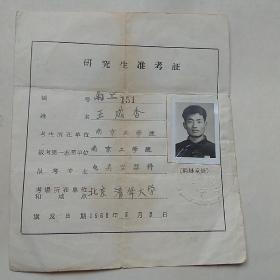 研究生准考証
编号 南工151
姓名 王成香
考生所在单位 南京工学院
报考第一志愿单位 南京工学院
报考专业 电真空器件
考场所在单位和地点 北京清华大学
填发日期1966年 月 日